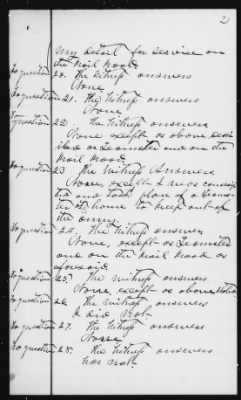 2
my detail for service on
the Rail Road.
To question 20. The witness answers
None
To question 21. The witness answers
None.
To question 22. The witness answers
None except as above described
as Teamster and on the
Rail Road
To question 23 The witness Answers
None, except I was conscripted
and took place of a
at home to keep out of
the army.
To question 24. The witness answers
None, except as Teamster
and on the Rail Road as
aforesaid.
To question 25. The witness answers
None except as above stated
To question 26. The witness answers
I did not
To question 27. The witness answers
None
To question 28. The witness answers
has not